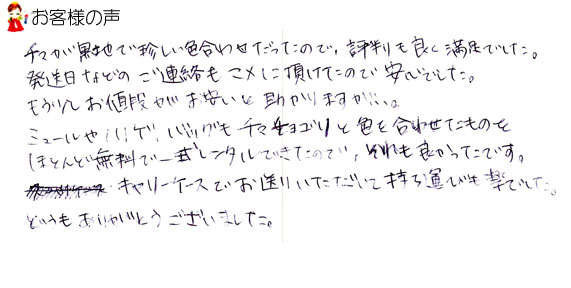 お客様の声
チマが黒地で珍しい色合わせだったので、評判も良く満足でした。
発送日などのご連絡もマメに頂けたので安心でした。
もう少しお値段がお安いと助かりますが…。
ミュールや バッグもチマチョゴリと色を合わせたものを
ほとんど無料で一式レンタルできたので、それも良かったです。
キャリーケースでお送りいただいて持ち運びも楽でした。
どうもありがとうございました。